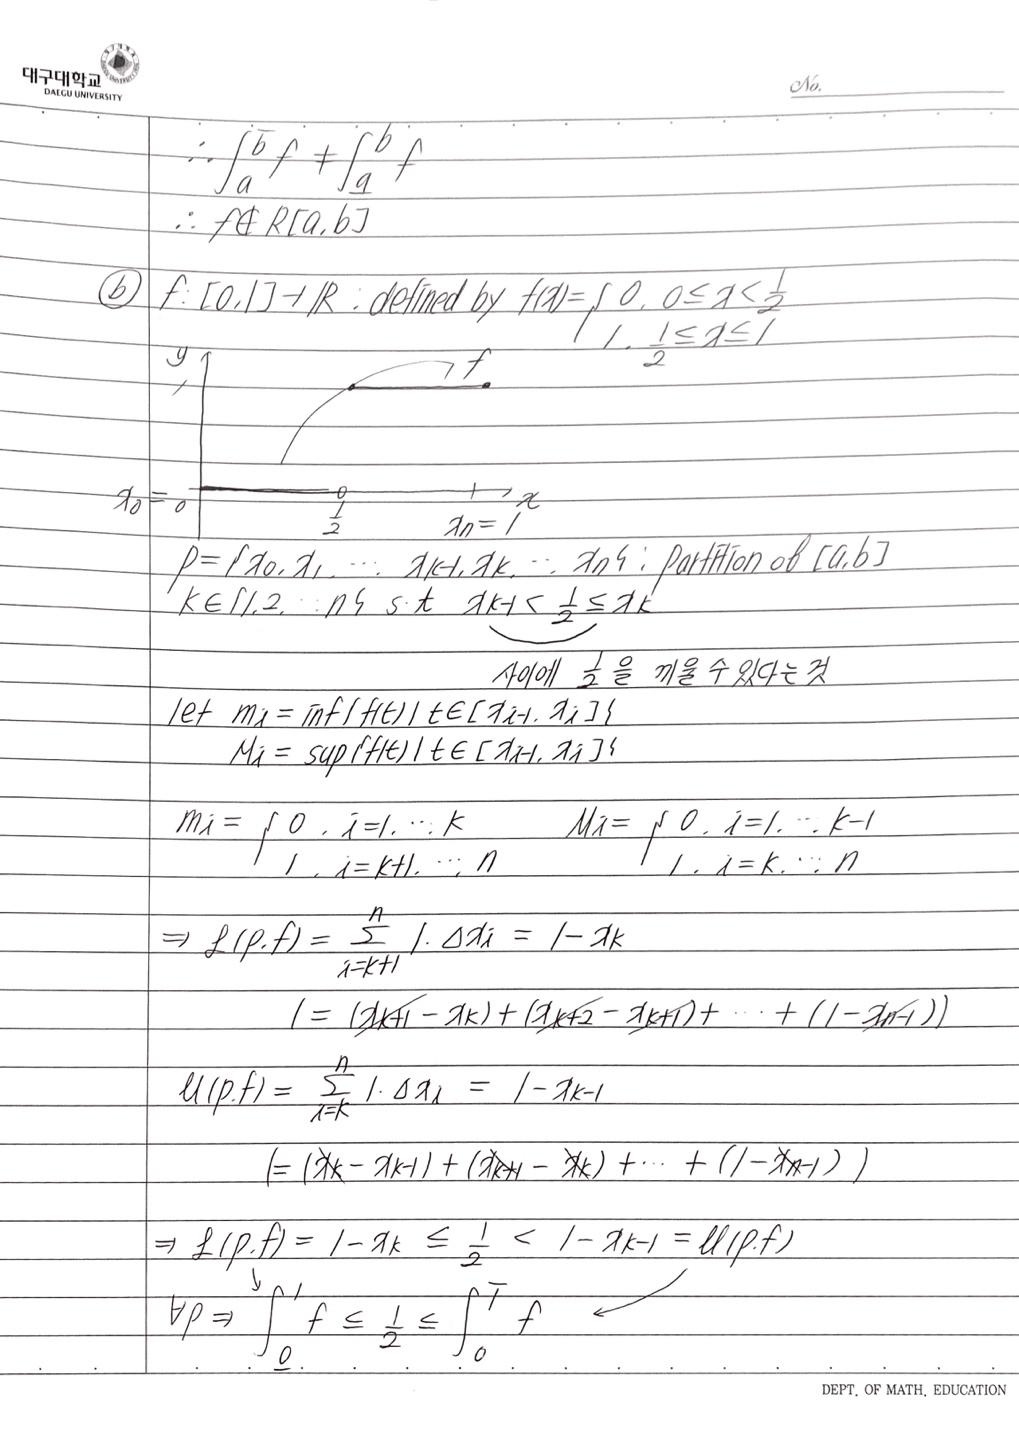 대구대학교
DAEGU UNIVERSITY
No.
∴ ∫_a^b̅ f ≠ ∫_a̲^b f
∴ f∉R[a,b]
ⓑ f: [0,1]→ℝ : defined by f(x)={ 0, 0≤x<1/2
1, 1/2≤x≤1
y
f
1
x₀ = 0
1/2
xₙ = 1
x
P={x₀, x₁, ⋯ xₖ₋₁, xₖ, ⋯, xₙ} : partition of [a,b]
k∈{1,2, ⋯ n} s.t xₖ₋₁ < 1/2 ≤ xₖ
사이에 1/2을 끼울 수 있다는 것
let mᵢ = inf{f(t) | t∈[xᵢ₋₁, xᵢ]}
Mᵢ = sup{f(t) | t∈[xᵢ₋₁, xᵢ]}
mᵢ = { 0, i=1, ⋯, k Mᵢ = { 0, i=1, ⋯, k-1
1, i=k+1, ⋯, n 1, i=k, ⋯, n
⇒ L(P,f) = Σ_{i=k+1}^{n} 1·Δxᵢ = 1-xₖ
(= (xₖ₊₁ - xₖ) + (xₖ₊₂ - xₖ₊₁) + ⋯ + (1-xₙ₋₁))
U(P,f) = Σ_{i=k}^{n} 1·Δxᵢ = 1-xₖ₋₁
(= (xₖ - xₖ₋₁) + (xₖ₊₁ - xₖ) + ⋯ + (1-xₙ₋₁))
⇒ L(P,f) = 1-xₖ ≤ 1/2 < 1-xₖ₋₁ = U(P,f)
∀P ⇒ ∫_0̲^1 f ≤ 1/2 ≤ ∫_0^1̅ f
DEPT. OF MATH. EDUCATION